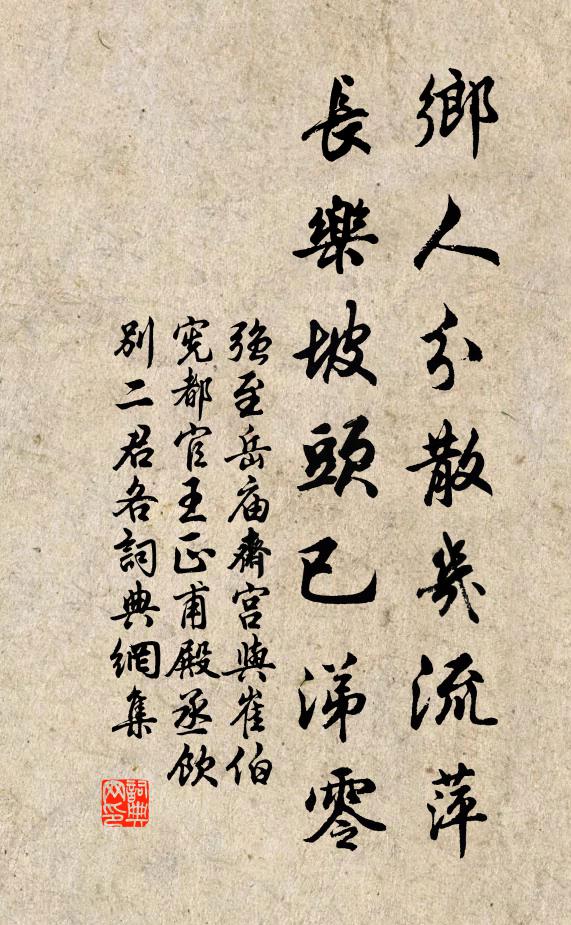 鄉人分散幾流萍
長樂坡頭已涕零
強至岳庙齋宫與崔伯
宪都官王正甫殿丞飲
別二君各詞典網集
詞典網印